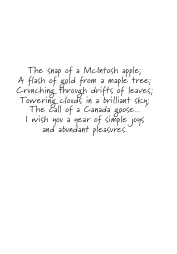 The snap of a McIntosh apple;
A flash of gold from a maple tree;
Crunching through drifts of leaves;
Towering clouds in a brilliant sky;
The call of a Canada goose...
I wish you a year of simple joys
and abundant pleasures.